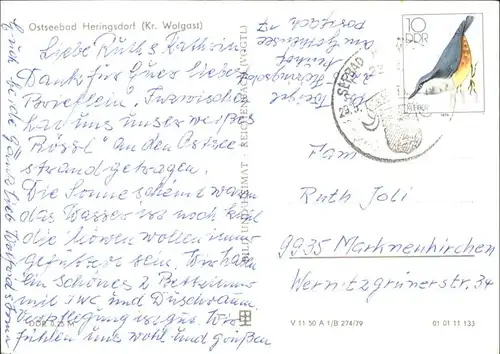 Ostseebad Heringsdorf (Kr. Wolgast)
Liebe Ruth & Kathrin
Dank für Euer liebes
Brieflein". Inzwischen
hat uns unser weißes
Rössl" an den Ostsee
strand getragen.
Die Sonne scheint warm
das Wasser ist noch kalt
die Möwen wollen immer
gefüttert sein. Wir haben
ein Schönes 2 Bettzimm.
mit WC und Duschraum
Verpflegung ist gut. Wir
fühlen uns wohl und grüßen
Euch beide
BILD UND HEIMAT · REICHENBACH (VOGTL)
DDR 0,25 M
10
DDR
KLEIBER
SEEBAD
Fam
Ruth Joli
9935 Markneukirchen
Wernitzgrünerstr. 34
V 11 50 A 1/B 274/79
01 01 11 133